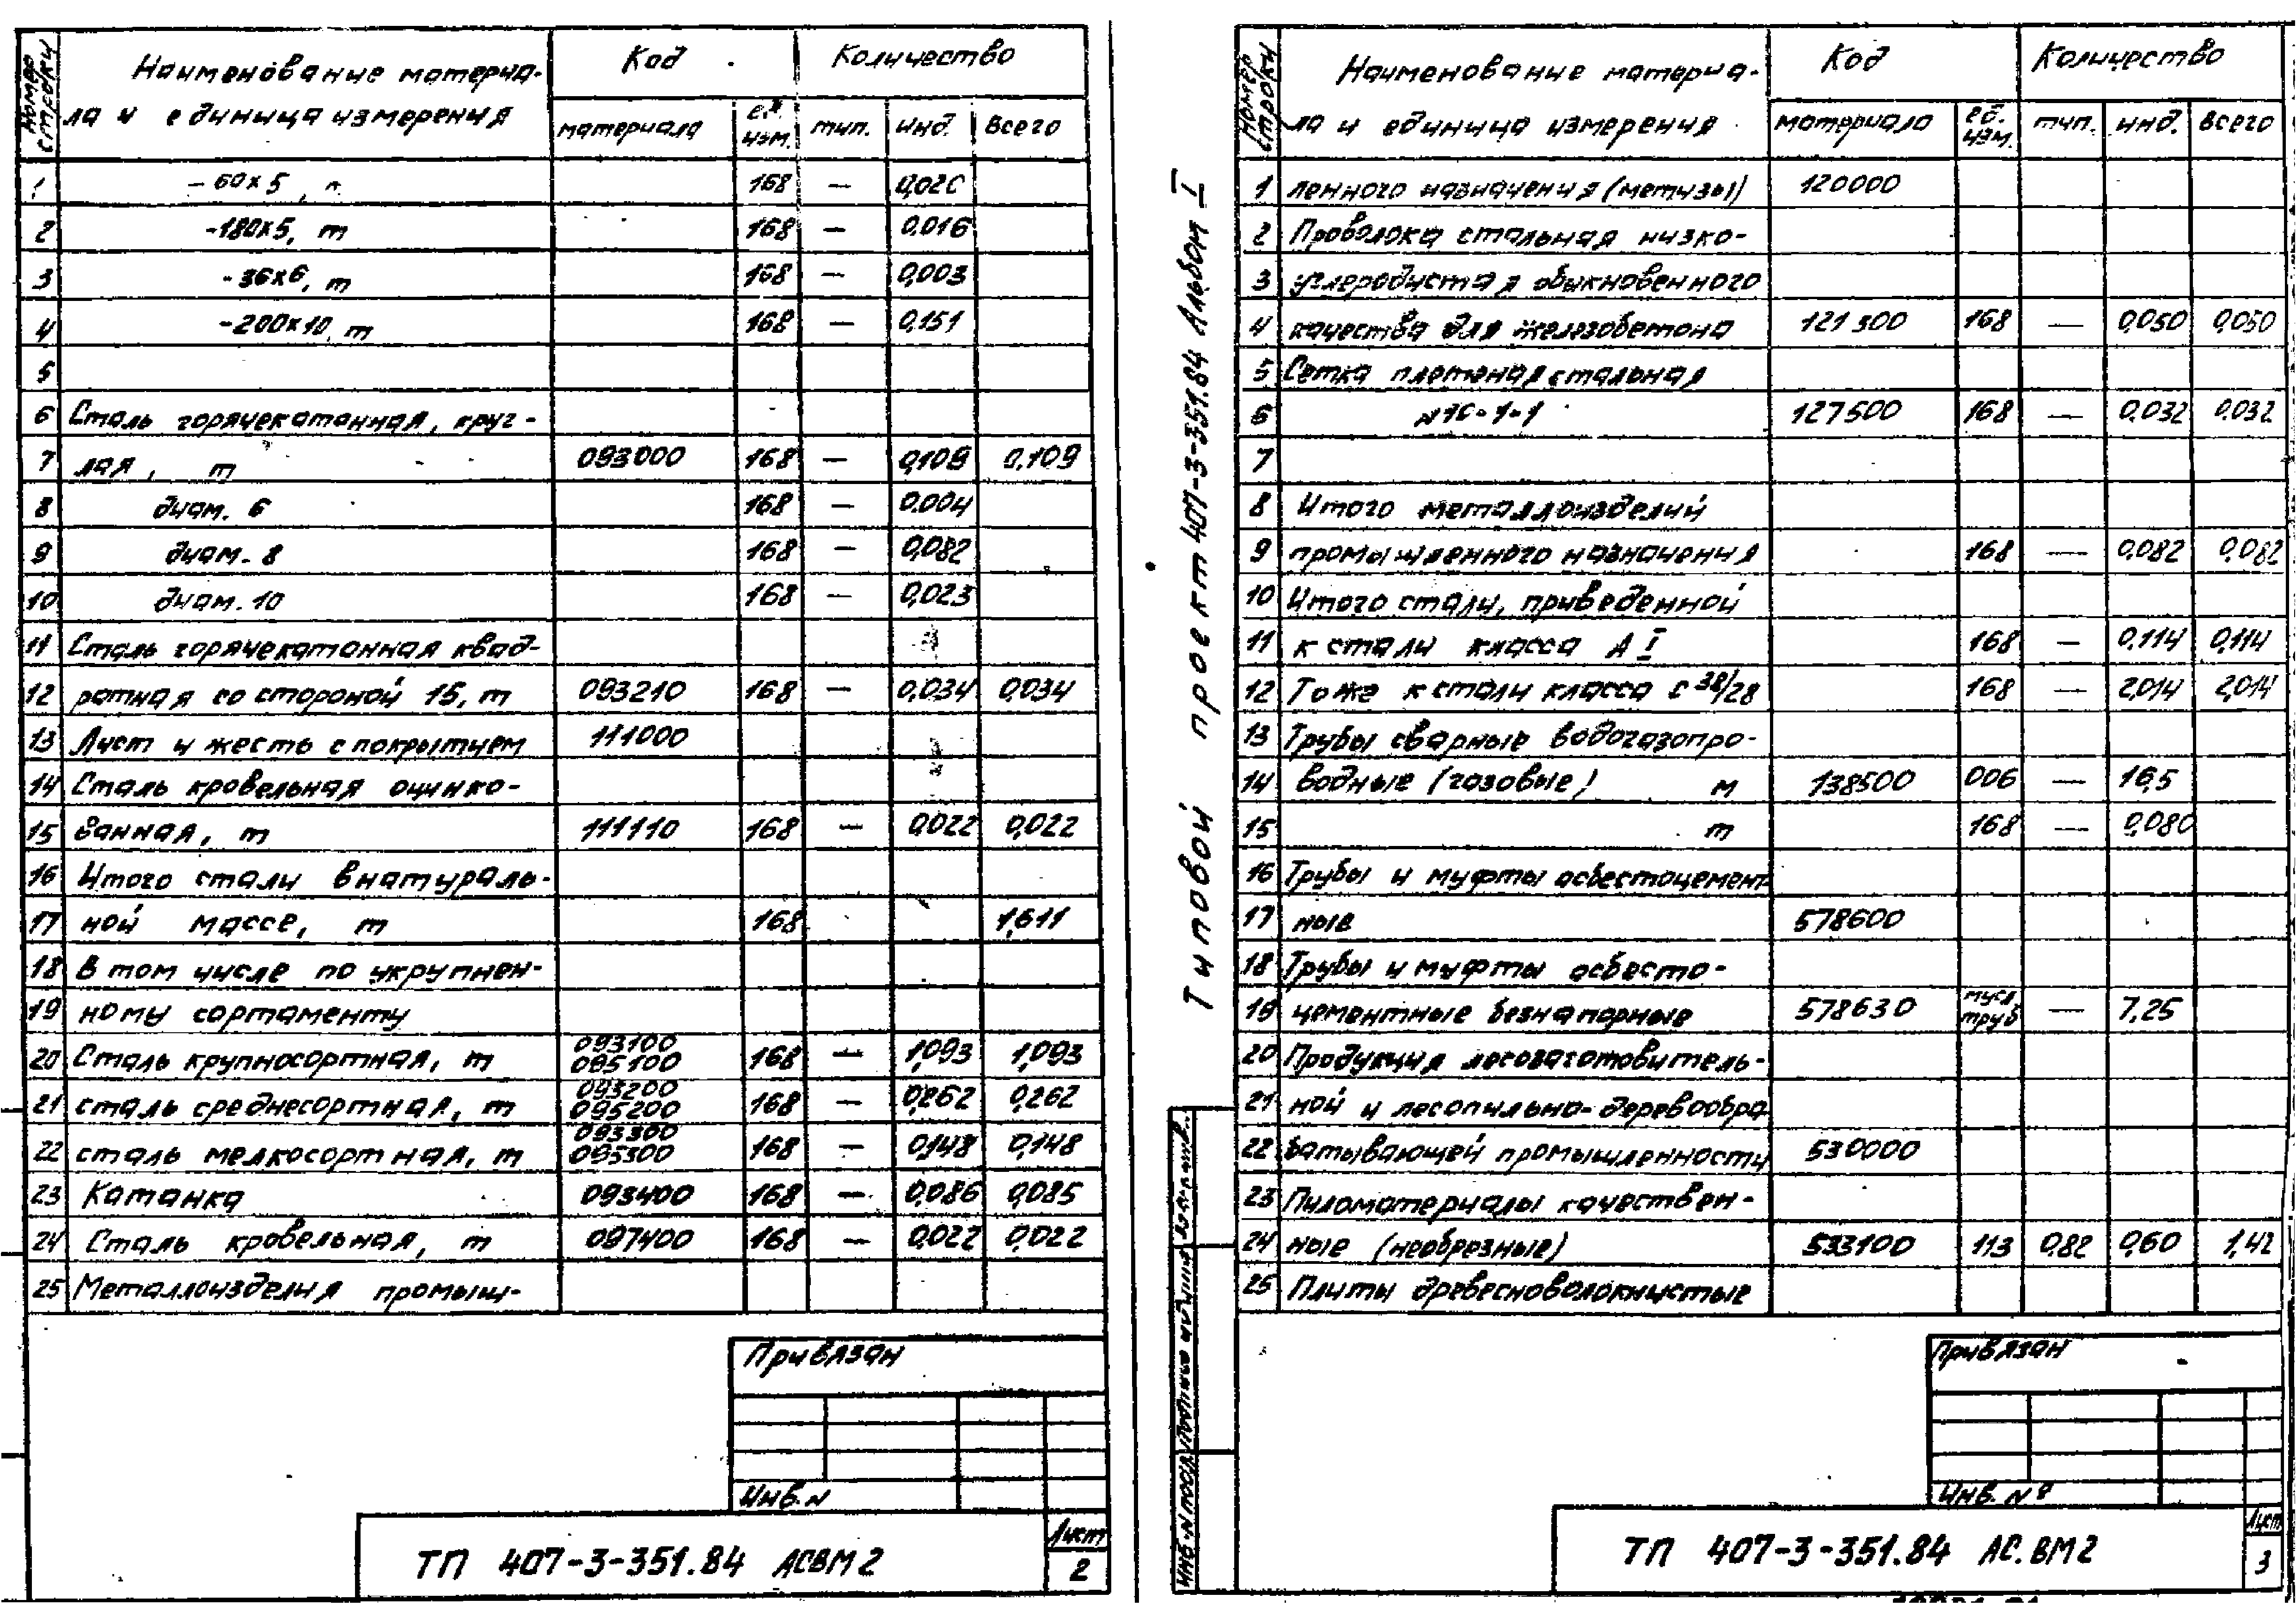 Номер строки | Наименование материа- | Код | Количество
ла и единица измерения | материала | ед. изм. | тип. | инд. | всего
1 | -60×5, т | 168 | — | 0,020
2 | -180×5, т | 168 | — | 0,016
3 | -36×6, т | 168 | — | 0,003
4 | -200×10, т | 168 | — | 0,151
5
6 | Сталь горячекатанная, круг-
7 | лая, т | 093000 | 168 | — | 0,109 | 0,109
8 | диам. 6 | 168 | — | 0,004
9 | диам. 8 | 168 | — | 0,082
10 | диам. 10 | 168 | — | 0,023
11 | Сталь горячекатанная квад-
12 | ратная со стороной 15, т | 093210 | 168 | — | 0,034 | 0,034
13 | Лист и жесть с покрытием | 111000
14 | Сталь кровельная оцинко-
15 | ванная, т | 111110 | 168 | — | 0,022 | 0,022
16 | Итого стали в натураль-
17 | ной массе, т | 168 | 1,611
18 | В том числе по укрупнен-
19 | ному сортаменту
20 | Сталь крупносортная, т | 093100 095100 | 168 | — | 1,093 | 1,093
21 | сталь среднесортная, т | 093200 095200 | 168 | — | 0,262 | 0,262
22 | сталь мелкосортная, т | 093300 095300 | 168 | — | 0,148 | 0,148
23 | Катанка | 093400 | 168 | — | 0,086 | 0,085
24 | Сталь кровельная, т | 097400 | 168 | — | 0,022 | 0,022
25 | Металлоизделия промыш-
Привязан
Инв. N
ТП 407-3-351.84 АСВМ2
Лист
2
Типовой проект 407-3-351.84 Альбом I
Номер строки | Наименование материа- | Код | Количество
ла и единица измерения | материала | ед. изм. | тип. | инд. | всего
1 | ленного назначения (метизы) | 120000
2 | Проволока стальная низко-
3 | углеродистая обыкновенного
4 | качества для железобетона | 121300 | 168 | — | 0,050 | 0,050
5 | Сетка плетеная стальная
6 | 127500 | 168 | — | 0,032 | 0,032
7
8 | Итого металлоизделий
9 | промышленного назначения | 168 | — | 0,082 | 0,082
10 | Итого стали, приведенной
11 | к стали класса А I | 168 | — | 0,114 | 0,114
12 | То же к стали класса С 38/28 | 168 | — | 2,014 | 2,014
13 | Трубы сварные водогазопро-
14 | водные (газовые) м | 138500 | 006 | — | 16,5
15 | т | 168 | — | 0,080
16 | Трубы и муфты асбестоцемент
17 | ные | 578600
18 | Трубы и муфты асбесто-
19 | цементные безнапорные | 578630 | труб | — | 7,25
20 | Продукция лесозаготовитель-
21 | ной и лесопильно-деревообра
22 | батывающей промышленности | 530000
23 | Пиломатериалы качествен-
24 | ные (необрезные) | 533100 | 113 | 0,82 | 0,60 | 1,42
25 | Плиты древесноволокнистые
Инв. N подл. | Подпись и дата | Взам. инв.
Привязан
Инв. №
ТП 407-3-351.84 АС.ВМ2
Лист
3